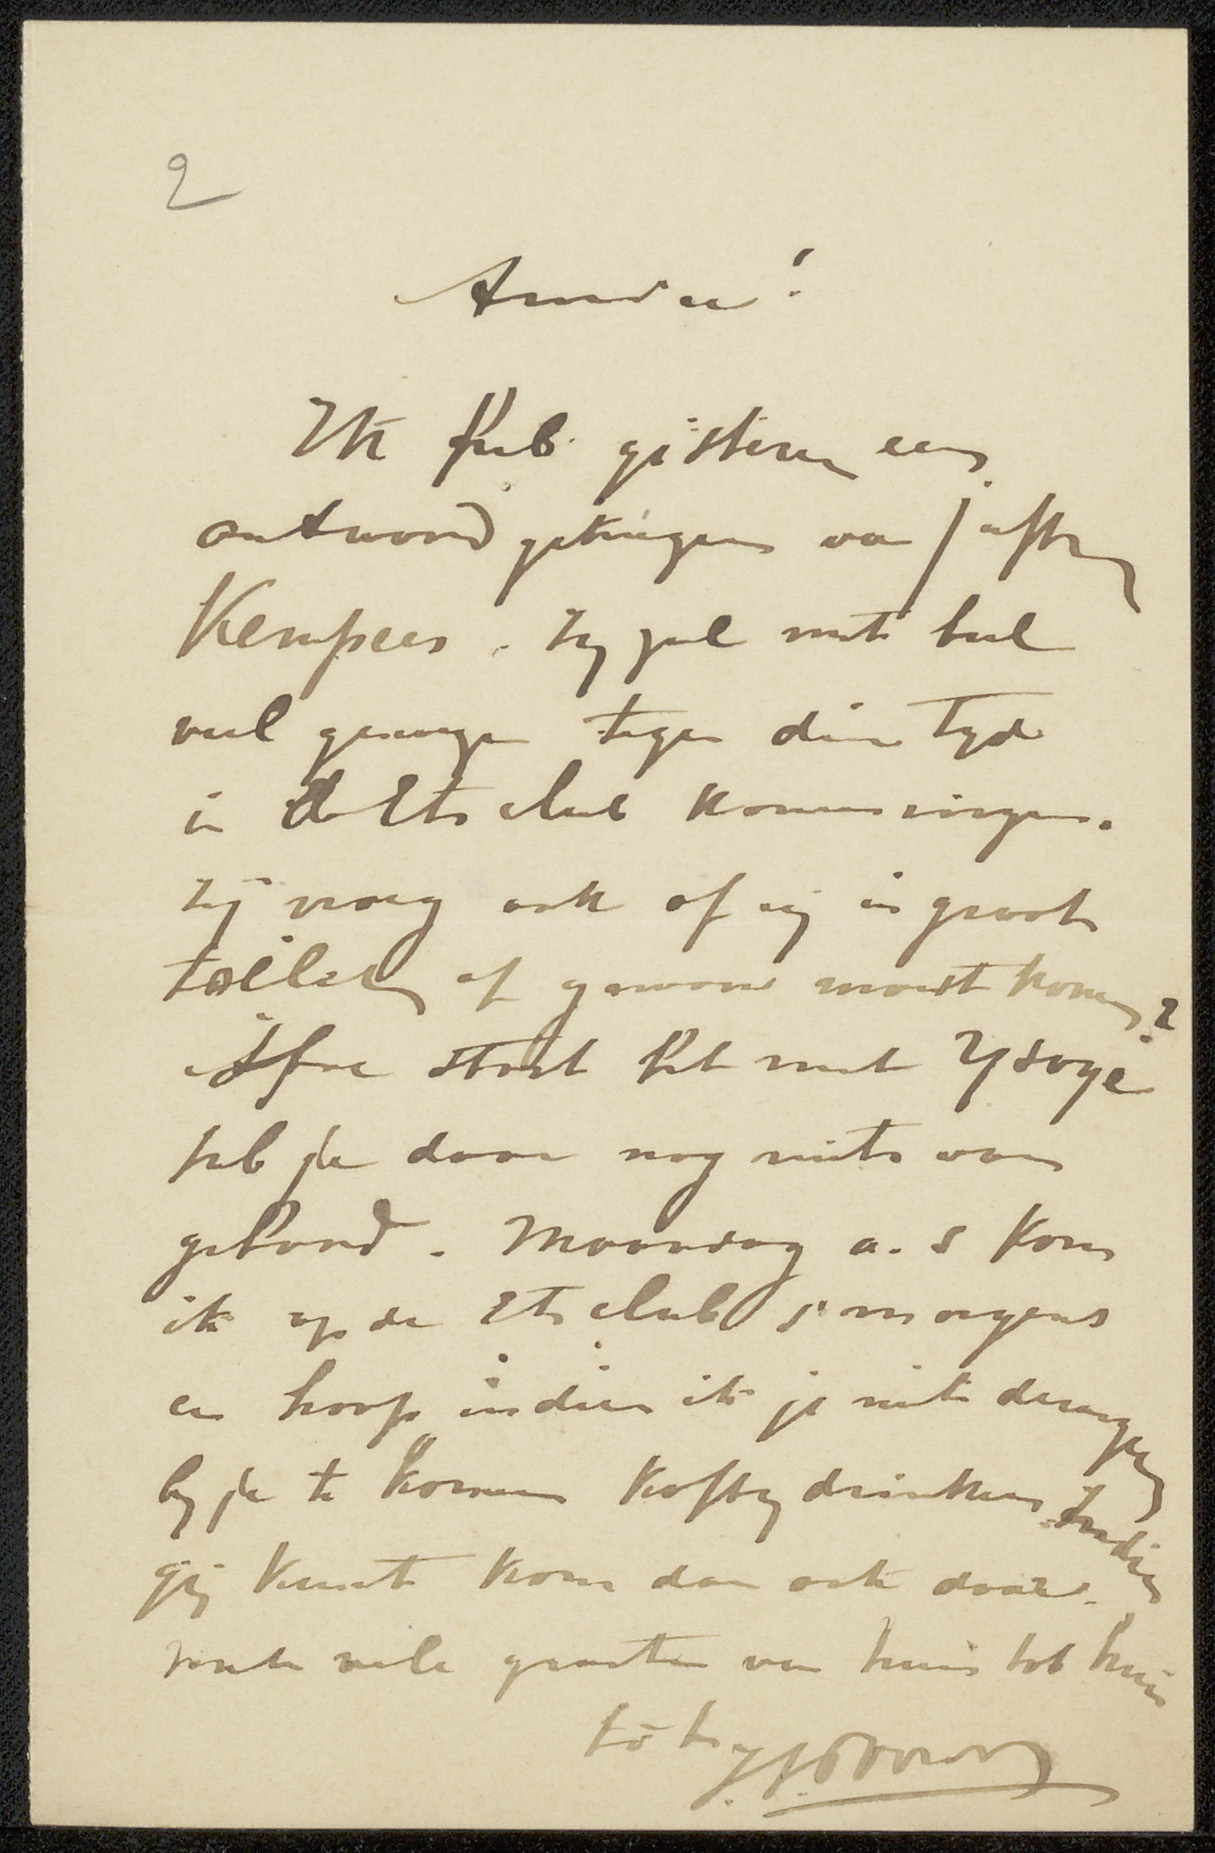 2
Amice!
Ik heb gisteren een
antwoord gekregen van Juffr.
Kempees. Zij zal met heel
veel genoegen tegen dien tyd
in de Ets club komen zingen.
Zij vroeg ook of zij in groot
toilet of gewoon moest komen?
Hoe staat het met Ysaye
heb je daar nog niets van
gehoord. Maandag a.s kom
ik op de Etsclub s'morgens
en hoop indien ik je niet derangeer
by je te komen koffy drinken. Indien
gij kunt kom dan ook daar.
vele groeten van huis tot huis
tot